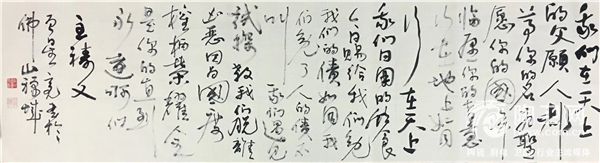 我們在天上
的父願人都
尊你的名為聖
願你的國
臨願你的旨意
行在地上如同
行在天上
我們日用的飲食
今日賜給我們免
我們的債如同我
們免了人的債不
叫我們遇見
試探救我們脫離
凶惡因為國度
權柄榮耀全
是你的直到
永遠阿們
主禱文
書於
佛山禪城